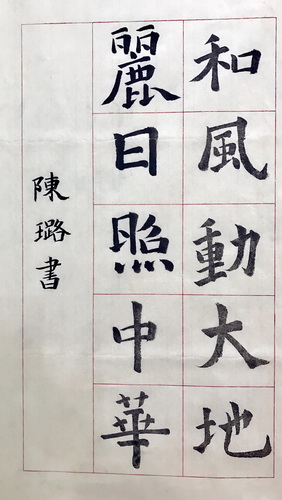 和風動大地
麗日照中華
陳璐書